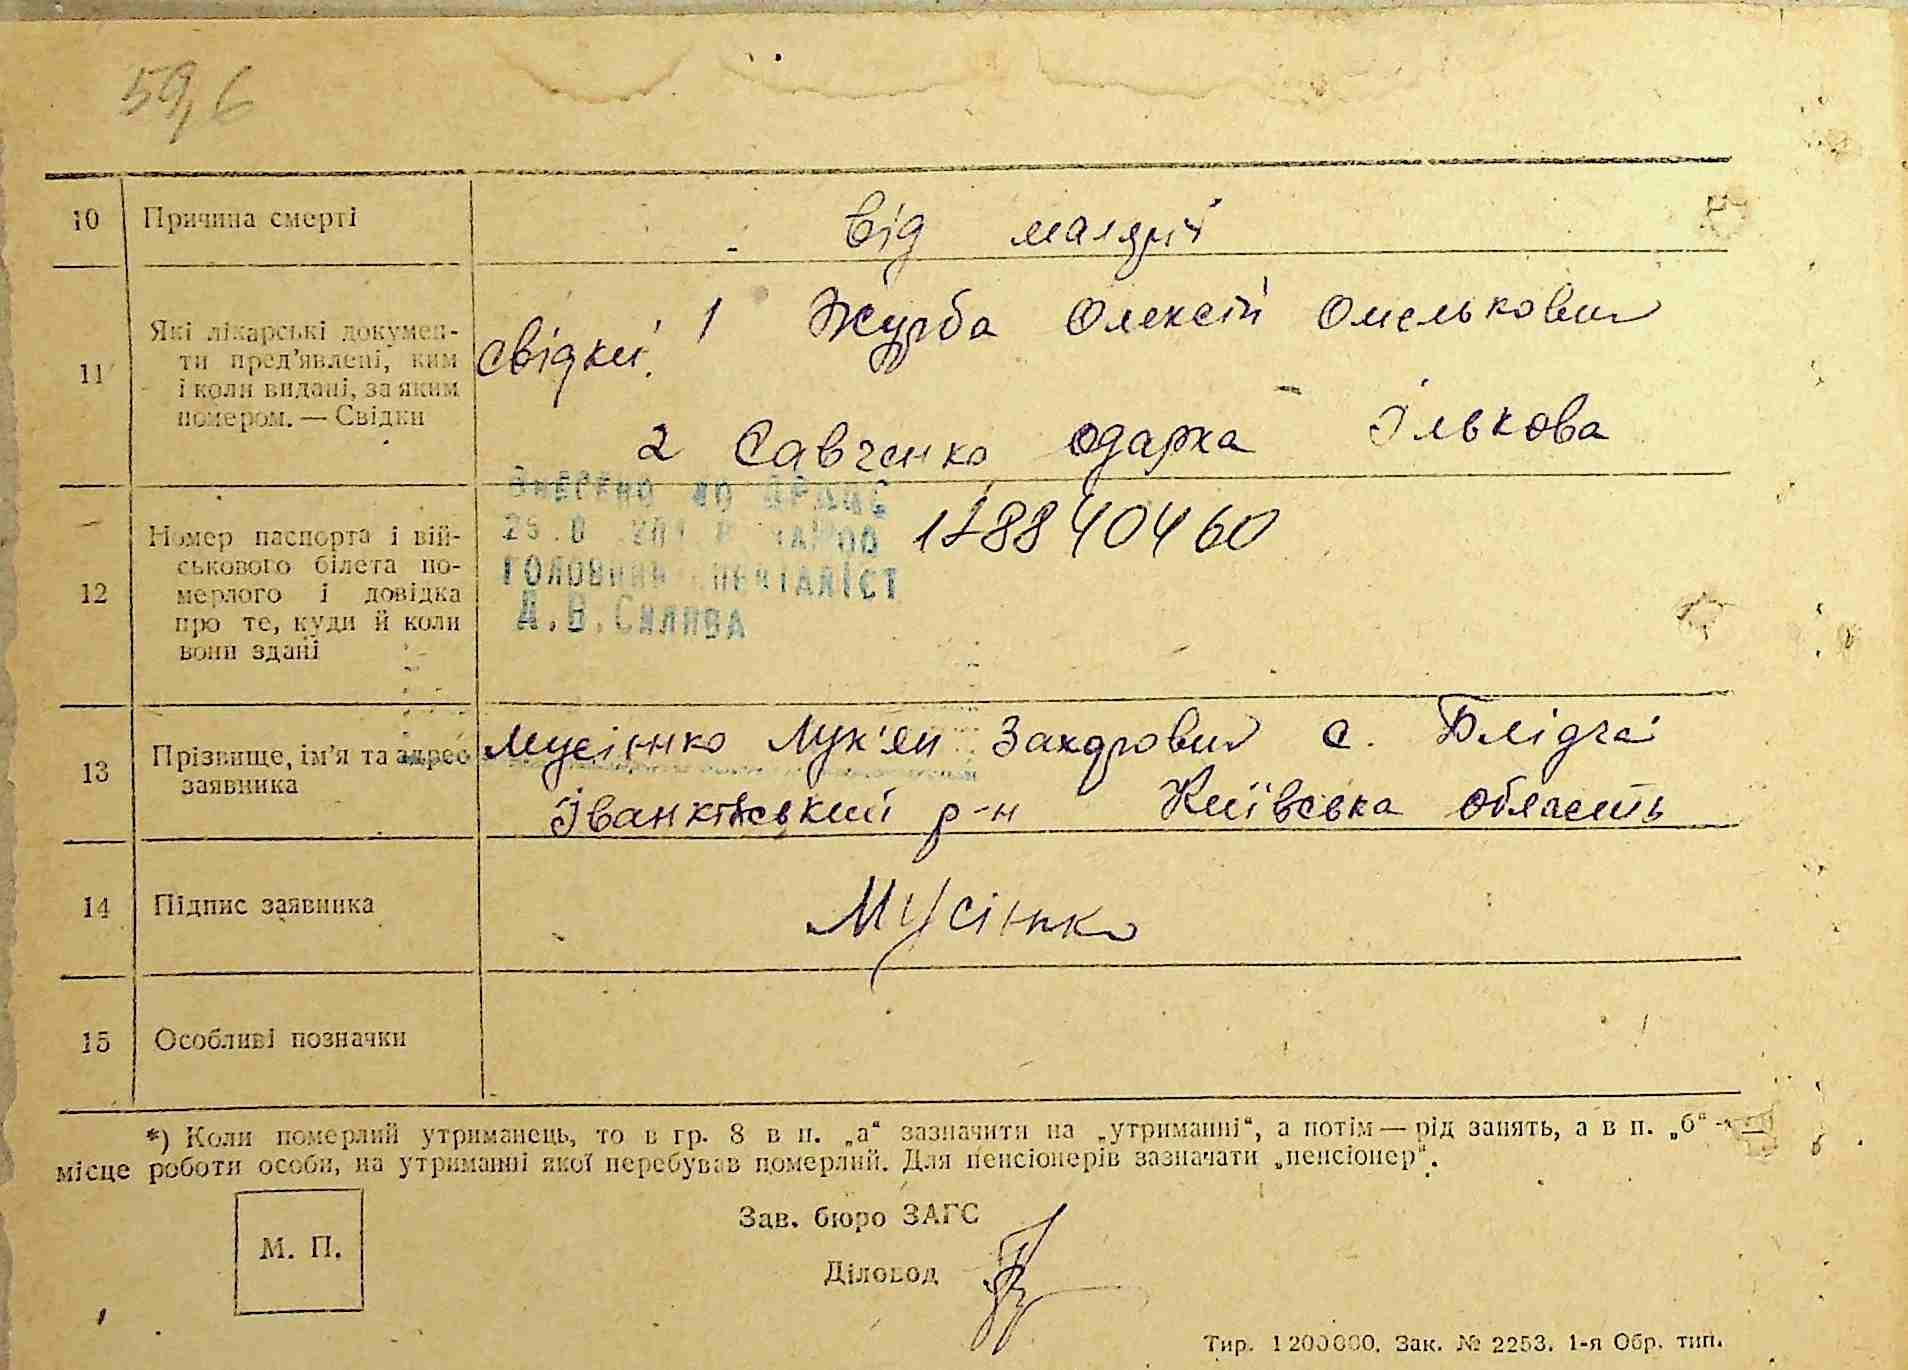 59,6
10 Причина смерті
від малярії
11 Які лікарські докумен-
ти пред'явлені, ким
і коли видані, за яким
номером. — Свідки
свідки: 1 Журба Олексій Омелькович
2 Савченко Одарка Ількова
12 Номер паспорта і вій-
ськового білета по-
мерлого і довідка
про те, куди й коли
вони здані
Внесено до ДРАЦС
головний спеціаліст
А.В.
178840460
13 Прізвище, ім'я та адрес
заявника
Мусінко Лук'ян Захарович с. Блідча
Іванківський р-н Київська область
14 Підпис заявника
Мусінко
15 Особливі позначки
*) Коли померлий утриманець, то в гр. 8 в п. „а“ зазначити на „утриманні“, а потім — рід занять, а в п. „б“ —
місце роботи особи, на утриманні якої перебував померлий. Для пенсіонерів зазначати „пенсіонер“.
М. П.
Зав. бюро ЗАГС
Діловод
Тир. 1200000. Зак. № 2253. 1-я Обр. тип.